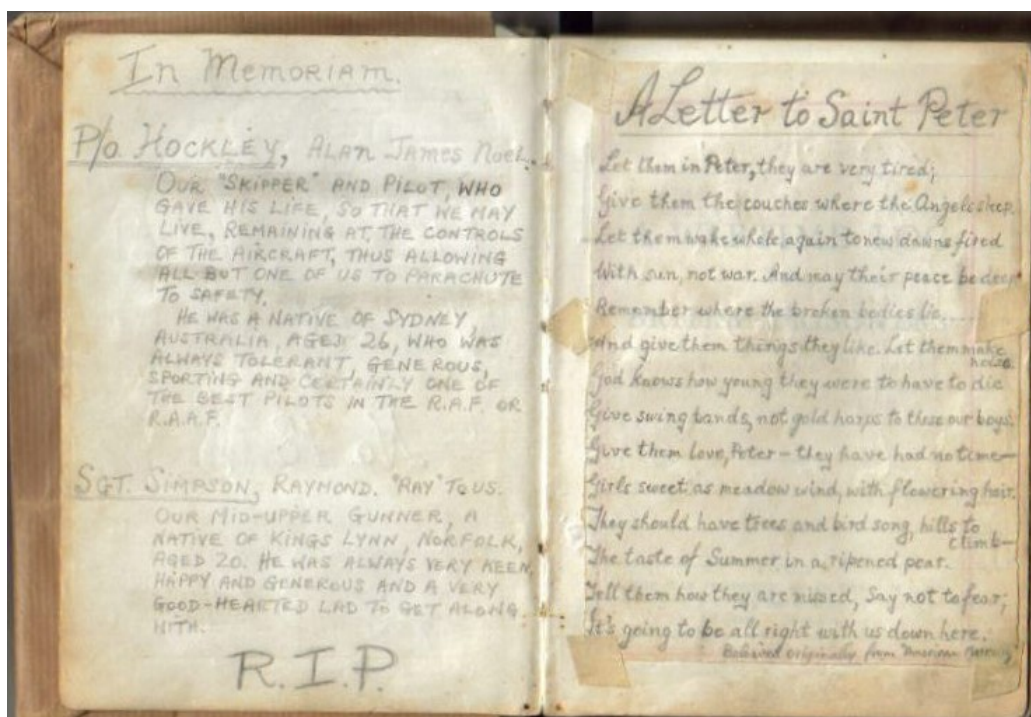 In Memoriam.
P/o. HOCKLEY, ALAN JAMES NOEL.
OUR "SKIPPER" AND PILOT, WHO
GAVE HIS LIFE, SO THAT WE MAY
LIVE, REMAINING AT THE CONTROLS
OF THE AIRCRAFT, THUS ALLOWING
ALL BUT ONE OF US TO PARACHUTE
TO SAFETY.
HE WAS A NATIVE OF SYDNEY,
AUSTRALIA, AGED 26, WHO WAS
ALWAYS TOLERANT, GENEROUS,
SPORTING AND CERTAINLY ONE OF
THE BEST PILOTS IN THE R.A.F. OR
R.A.A.F.
SGT. SIMPSON, RAYMOND. "RAY" TO US.
OUR MID-UPPER GUNNER, A
NATIVE OF KINGS LYNN, NORFOLK,
AGED 20. HE WAS ALWAYS VERY KEEN,
HAPPY AND GENEROUS AND A VERY
GOOD-HEARTED LAD TO GET ALONG
WITH.
R.I.P.
A Letter to Saint Peter
Let them in Peter, they are very tired;
Give them the couches where the Angels sleep.
Let them wake whole again to new dawns fired
With sun, not war. And may their peace be deep
Remember where the broken bodies lie....
And give them things they like. Let them make
noise.
God knows how young they were to have to die
Give swing bands, not gold harps to these our boys.
Give them love, Peter — they have had no time —
Girls sweet as meadow wind, with flowering hair.
They should have trees and bird song, hills to
climb —
The taste of Summer in a ripened pear.
Tell them how they are missed, Say not to fear;
It's going to be all right with us down here.
Believed originally from "American